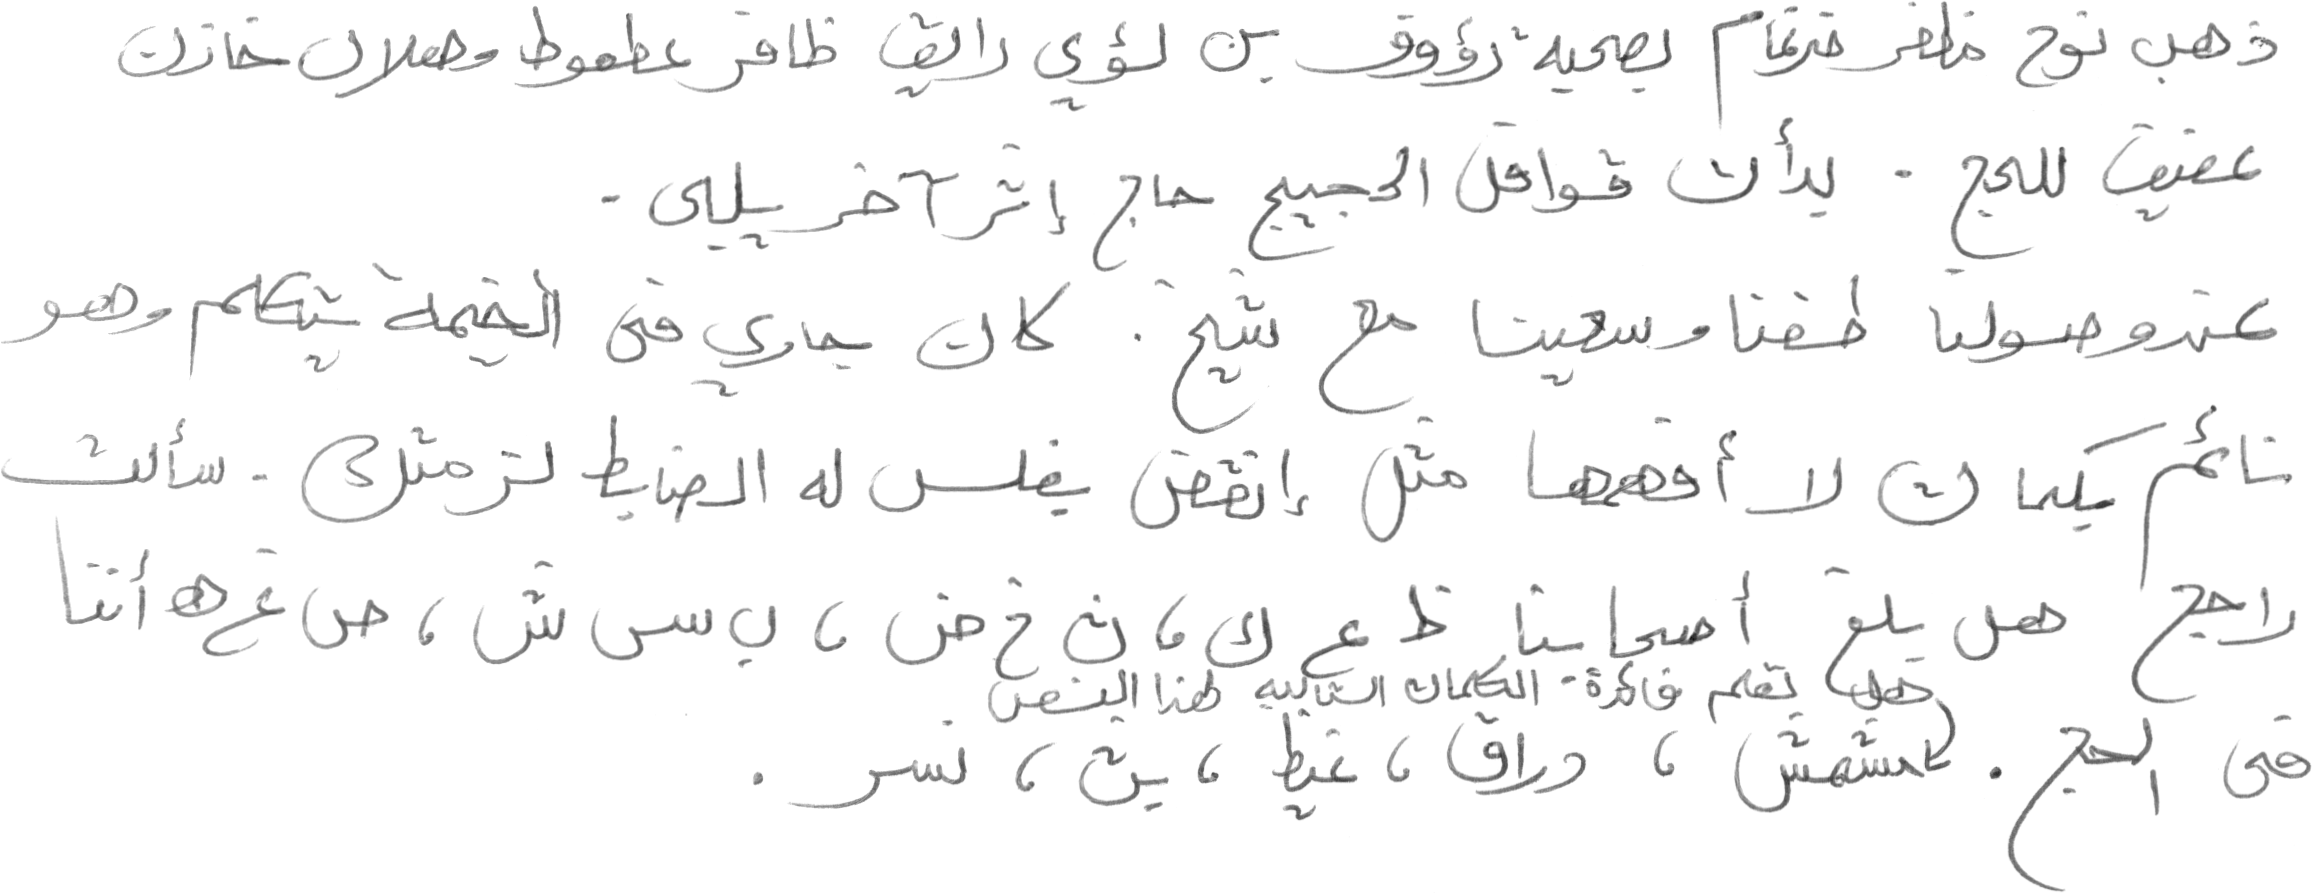 ذهب نوح مظفر ضرغام بصحبة رؤوف بن لؤي رائف ظافر عطعوط وهلال خازن
عفيف للحج . بدأت قوافل الحجيج حاج إثر آخر يلبي .
عند وصولنا طفنا وسعينا مع شيخ . كان جاري في الخيمة يتكلم وهو
نائم بكلمات لا أفهمها مثل إنقض يغلس له الضابط لتزمتك . سألت
راجح هل بلغ أصحابنا ظ ع ك ، ن خ ض ، ب س ش ، ص غ ه أننا
في الحج .
هل تعلم فائدة الكلمات التالية لهذا النص
مشمش ، دراق ، غيظ ، بث ، نسر .